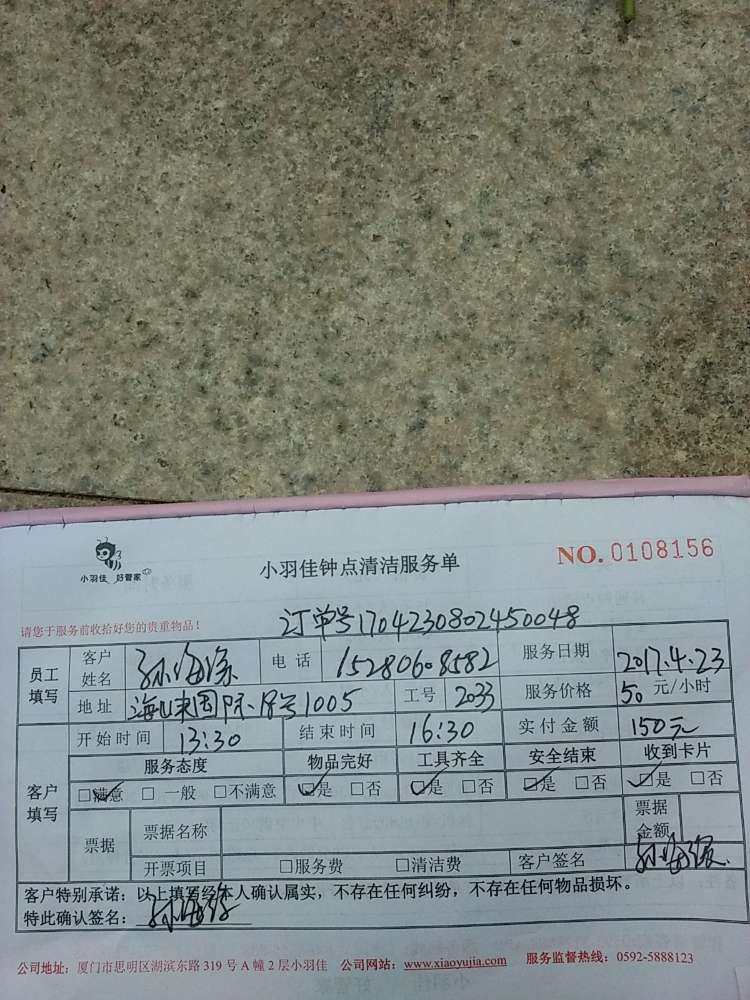 小羽佳 好管家
小羽佳钟点清洁服务单
NO. 0108156
请您于服务前收拾好您的贵重物品！
订单号1704230802450048
员工填写 客户姓名 孙海 电话 15280608582 服务日期 2017.4.23
地址 国际 号1005 工号 2033 服务价格 50 元/小时
客户填写 开始时间 13:30 结束时间 16:30 实付金额 150元
服务态度 物品完好 工具齐全 安全结束 收到卡片
□满意 □一般 □不满意 □是 □否 □是 □否 □是 □否 □是 □否
票据 票据名称 票据金额
开票项目 □服务费 □清洁费 客户签名 孙海
客户特别承诺：以上填写经本人确认属实，不存在任何纠纷，不存在任何物品损坏。
特此确认签名：孙海
公司地址：厦门市思明区湖滨东路 319 号 A 幢 2 层小羽佳 公司网站：www.xiaoyujia.com 服务监督热线：0592-5888123